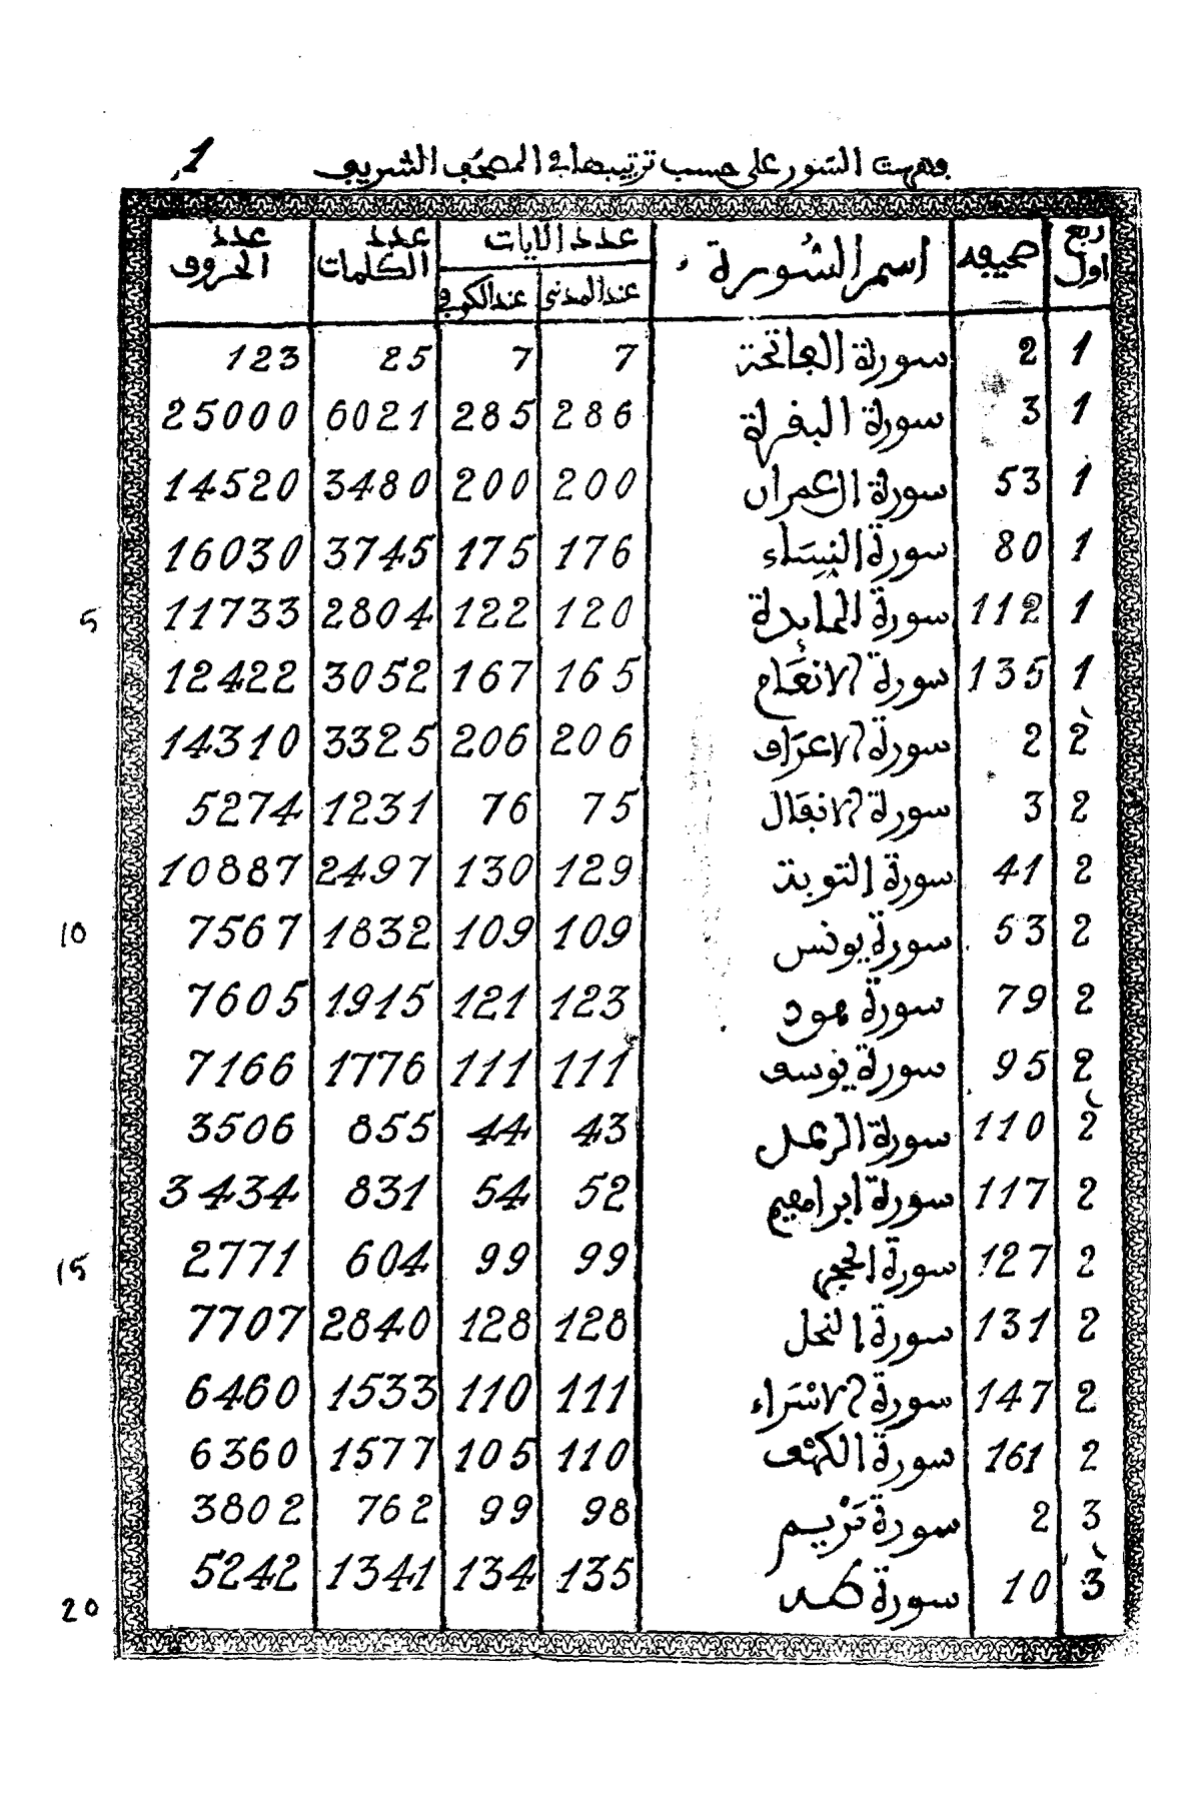 1
فهرست السور على حسب ترتيبها في المصحف الشريف
ربع اول صحيفه اسم السورة عدد الايات عدد الكلمات عدد الحروف
عند المدني عند الكوفي
1 2 سورة الفاتحة 7 7 25 123
1 3 سورة البقرة 286 285 6021 25000
1 53 سورة ال عمران 200 200 3480 14520
1 80 سورة النساء 176 175 3745 16030
1 112 سورة المايدة 120 122 2804 11733 5
1 135 سورة الانعام 165 167 3052 12422
2 2 سورة الاعراف 206 206 3325 14310
2 3 سورة الانفال 75 76 1231 5274
2 41 سورة التوبة 129 130 2497 10887
2 53 سورة يونس 109 109 1832 7567 10
2 79 سورة هود 123 121 1915 7605
2 95 سورة يوسف 111 111 1776 7166
2 110 سورة الرعد 43 44 855 3506
2 117 سورة ابراهيم 52 54 831 3434
2 127 سورة الحجر 99 99 604 2771 15
2 131 سورة النحل 128 128 2840 7707
2 147 سورة الاسراء 111 110 1533 6460
2 161 سورة الكهف 110 105 1577 6360
3 2 سورة مريم 98 99 762 3802
3 10 سورة طه 135 134 1341 5242 20